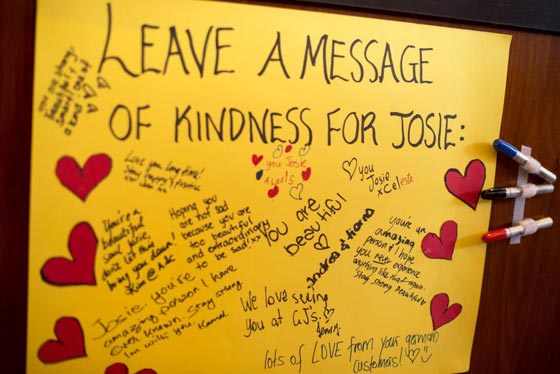 LEAVE A MESSAGE
OF KINDNESS FOR JOSIE:
Love you long time!
you Josie
you
Josie
xCeleste
You're a
beautiful
soul Josie,
don't let this
bring you down.
Hoping you
are not sad
because you are
too beautiful
and extraordinary
to be sad! xx
You are
beautiful
Andrea & Kiarna
You're an
amazing
person & I hope
you never experience
anything like that again.
Stay strong beautiful
Josie, you're
amazing person I have
ever known. Stay strong
I'm with you. Kamal.
We love seeing
you at CJ's.
lots of LOVE from your german
customers!